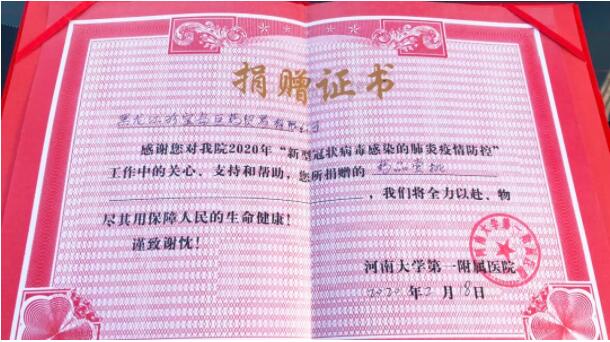 捐赠证书
黑龙江珍宝岛药业股份有限公司
感谢您对我院2020年“新型冠状病毒感染的肺炎疫情防控”
工作中的关心、支持和帮助，您所捐赠的 药品壹批
，我们将全力以赴、物
尽其用保障人民的生命健康！
谨致谢忱！
河南大学第一附属医院
2020年2月18日